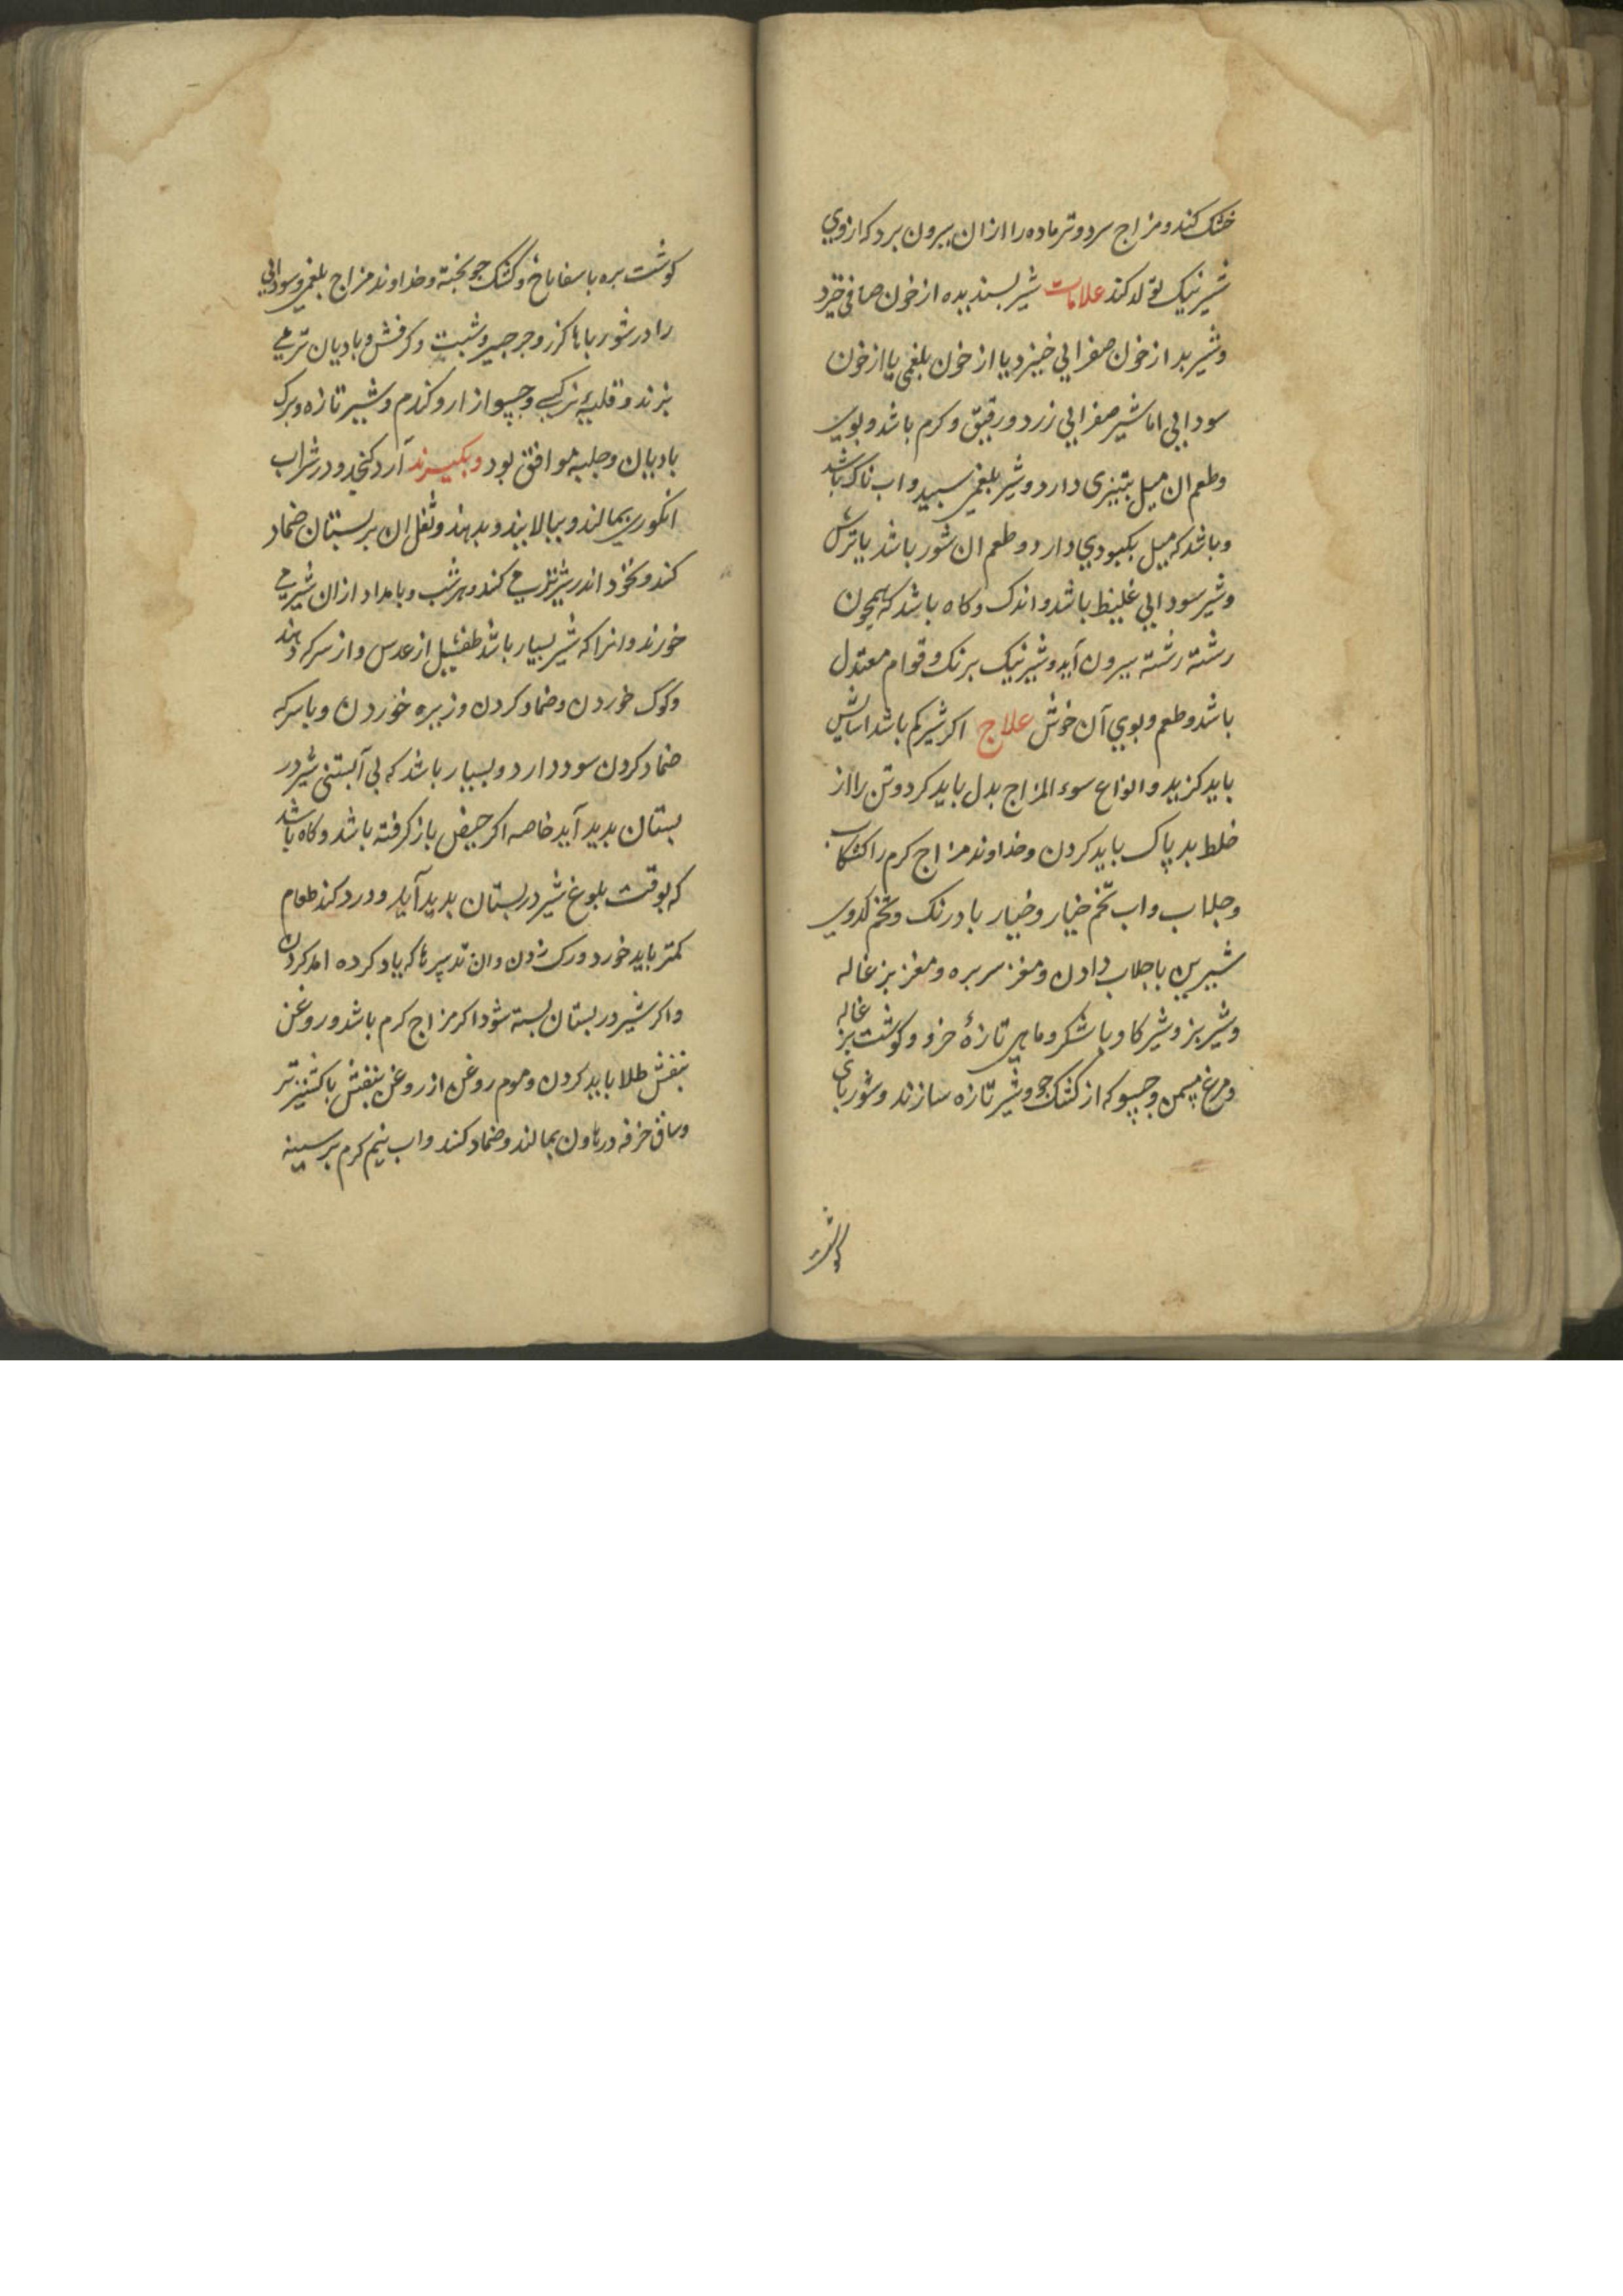 خشک کند و مزاج سرد و تر ماده را ازان بیرون برد که ازوی
شیر نیک تولد کند علامات شیر پسندیده از خون صافی خیزد
و شیر بد از خون صفرایی خیزد یا از خون بلغمی یا از خون
سودایی اما شیر صفرایی زرد و رقیق و کرم باشد و بوی
و طعم ان میل بتیزی دارد و شیر بلغمی سپید و اب ناک باشد
و باشد که میل بکبودی دارد و طعم ان شور باشد یا ترش
و شیر سودایی غلیظ باشد و اندک و کاه باشد که همچون
رشته رشته بیرون آید و شیر نیک برنک و قوام معتدل
باشد و طعم و بوی آن خوش علاج اکر شیر کم باشد اسایش
باید کزید و انواع سوء المزاج بدل باید کرد و تن را از
خلط بد پاک باید کردن و خداوند مزاج کرم را کشکاب
و جلاب و اب تخم خیار و خیار بادرنک و تخم کدوی
شیرین با جلاب دادن و مغز سر بره و مغز بزغاله
و شیر بز و شیر کاو با شکر و ماهی تازهٔ خرد و کوشت بزغاله
و مرغ مسمن و حسو که از کشک جو و شیر تازه سازند و شوربای
کوشت
کوشت بره با سفاناخ و کشک جو پخته و خداوند مزاج بلغمی و سودایی
را در شورباها کزر و جرجیر و شبت و کرفش و بادیان تر می
پزند و قلیهٔ نرکسی و حسو از ارد کندم و شیر تازه و برک
بادیان و حلبه موافق بود و بکیرند آرد کنجد و در شراب
انکوری بمالند و بپالایند و بدهند و ثفل ان بر پستان ضماد
کند و نخود اندر شیر تر می کند و هر شب و بامداد ازان شیر می
خورند و انرا که شیر بسیار باشد طفشیل از عدس و از سرکه دهند
و کوک خوردن و ضماد کردن و زیره خوردن و با سرکه
ضماد کردن سود دارد و بسیار باشد که بی آبستنی شیر در
پستان پدید آید خاصه اکر حیض باز کرفته باشد و کاه باشد
که بوقت بلوغ شیر در پستان پدید آید و درد کند طعام
کمتر باید خورد و رک زدن و ان تدبیرها که یاد کرده امد کردن
و اکر شیر در پستان بسته شود اکر مزاج کرم باشد و روغن
بنفش طلا باید کردن و موم روغن از روغن بنفش با کشنیز تر
و ساق خرفه در هاون بمالند و ضماد کنند و اب نیم کرم بر سینه